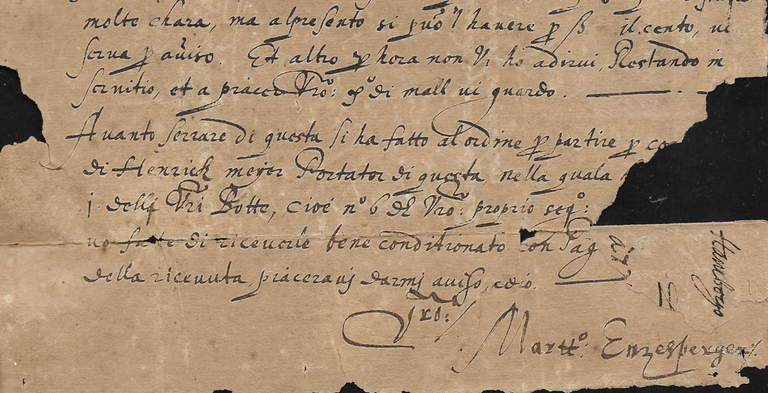 molto chara, ma alpresento si può havere p ß il cento, vi
serva p aviso. Et altro p hora non Vi ho adirvi, Restando in
servitio, et a piacer Vro: di mall vi guardo.
Avanto serrare di questa si ha fatto al ordine p partire p
di Henrick meyer Portator di questa, nella quala
j delle Vri Botte, cioè nº 6 del Vro: proprio segº:
fatte di riceverle bene conditionato con pag
della ricevuta, piaceravj darmj aviso, adio.
Vro:
Martt°: Enzesperger
Hamborgo